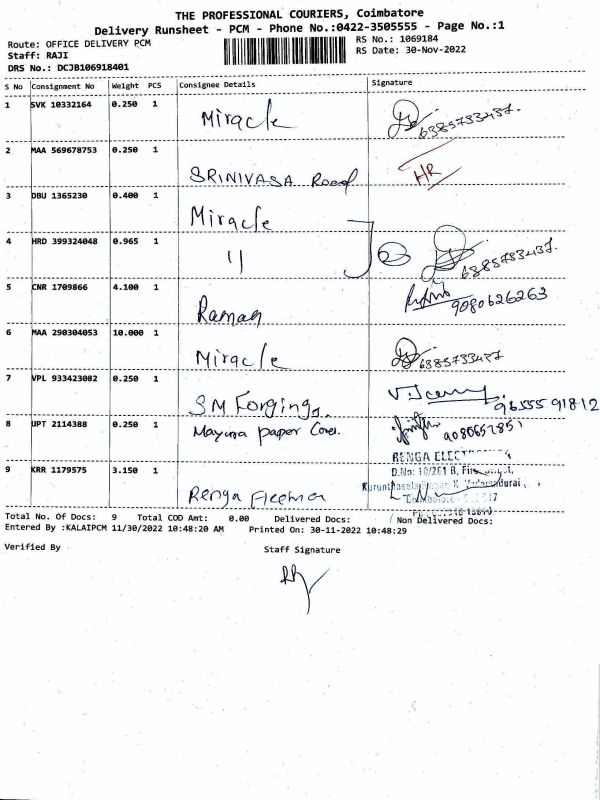 THE PROFESSIONAL COURIERS, Coimbatore
Delivery Runsheet - PCM - Phone No.:0422-3505555 - Page No.:1
Route: OFFICE DELIVERY PCM
RS No.: 1069184
Staff: RAJI
RS Date: 30-Nov-2022
DRS No.: DCJB106918401
S No Consignment No Weight PCS Consignee Details Signature
1 SVK 10332164 0.250 1
Miracle 6385733437.
2 MAA 569678753 0.250 1
SRINIVASA Road HR
3 DBU 1365230 0.400 1
Miracle
4 HRD 399324048 0.965 1
11 6385733437.
5 CNR 1709866 4.100 1
Raman 9080626263
6 MAA 290304053 10.000 1
Miracle 6385733437
7 VPL 933423082 0.250 1
SM Forging 96555 91812
8 UPT 2114388 0.250 1
Mayura paper Cones. 9080657851
9 KRR 1179575 3.150 1
RENGA
D.No: 10/261 B,
Renga
Total No. Of Docs: 9 Total COD Amt: 0.00 Delivered Docs: Non Delivered Docs:
Entered By :KALAIPCM 11/30/2022 10:48:20 AM Printed On: 30-11-2022 10:48:29
Verified By Staff Signature